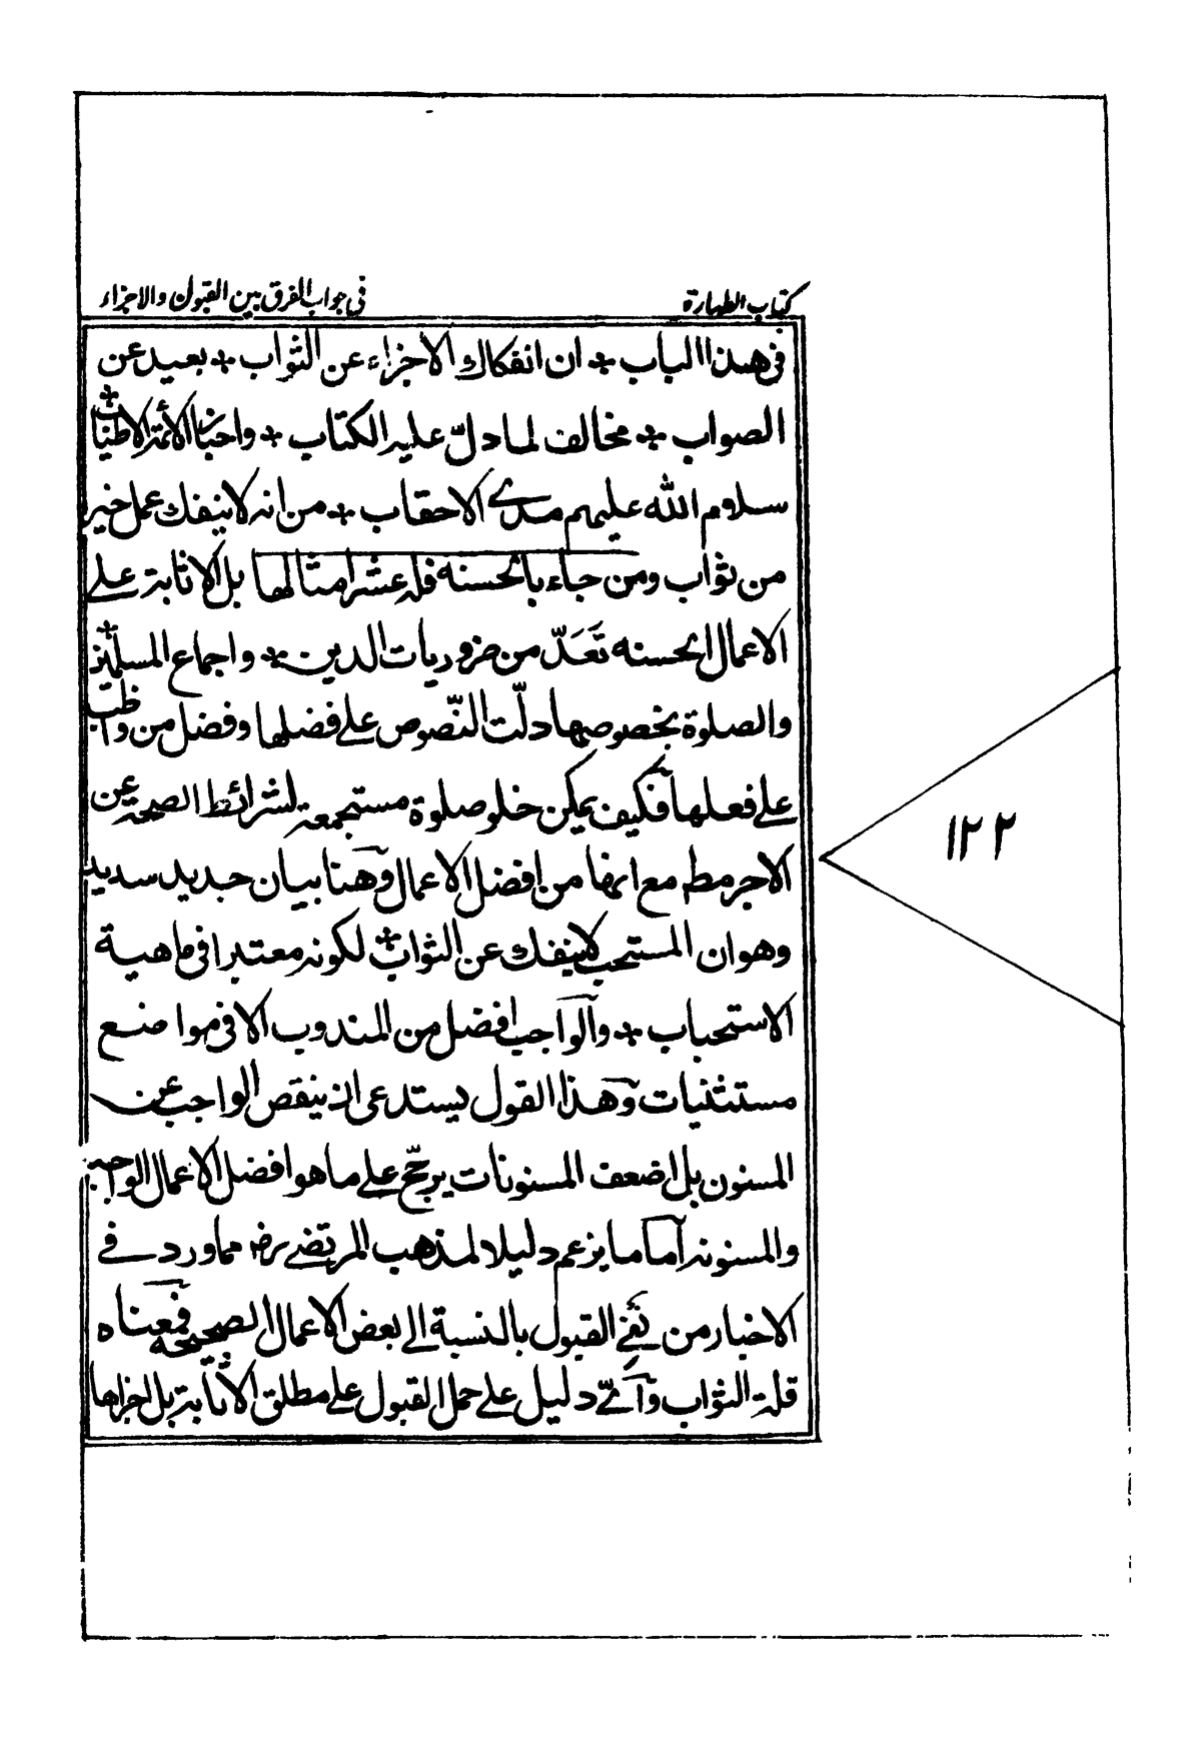 كتاب الطهارة
في جواب الفرق بين القبول والاجزاء
في هذا الباب * ان انفكاك الاجزاء عن الثواب * بعيد عن
الصواب * مخالف لما دلّ عليه الكتاب * واخبار الأئمة الاطياب *
سلام الله عليهم مدى الاحقاب * من انه لا ينفك عمل خير
من ثواب ومن جاء بالحسنة فله عشر امثالها بل الاثابة على
الاعمال الحسنه تُعَدّ من ضروريات الدين * واجماع المسلمين *
والصلوة بخصوصها دلّت النّصوص على فضلها وفضل من واظب
على فعلها فكيف يمكن خلو صلوة مستجمعة لشرائط الصحة عن
الاجر مط مع انها من افضل الاعمال وهنا بيان جديد سديد
وهو ان المستحب لا ينفك عن الثواب * لكونه معتبرا في ماهية
الاستحباب * والواجب افضل من المندوب الا في مواضع
مستثنيات وهذا القول يستدعى ان ينقص الواجب عن
المسنون بل اضعف المسنونات يرجّح على ما هو افضل الاعمال الواجبة
والمسنونه اما ما يزعم دليلا لمذهب المرتضى رض مما ورد في
الاخبار من نفي القبول بالنسبة الى بعض الاعمال الصحيحة فمعناه
قلة الثواب وايّ دليل على حمل القبول على مطلق الاثابة بل اجزاها
١٢٢